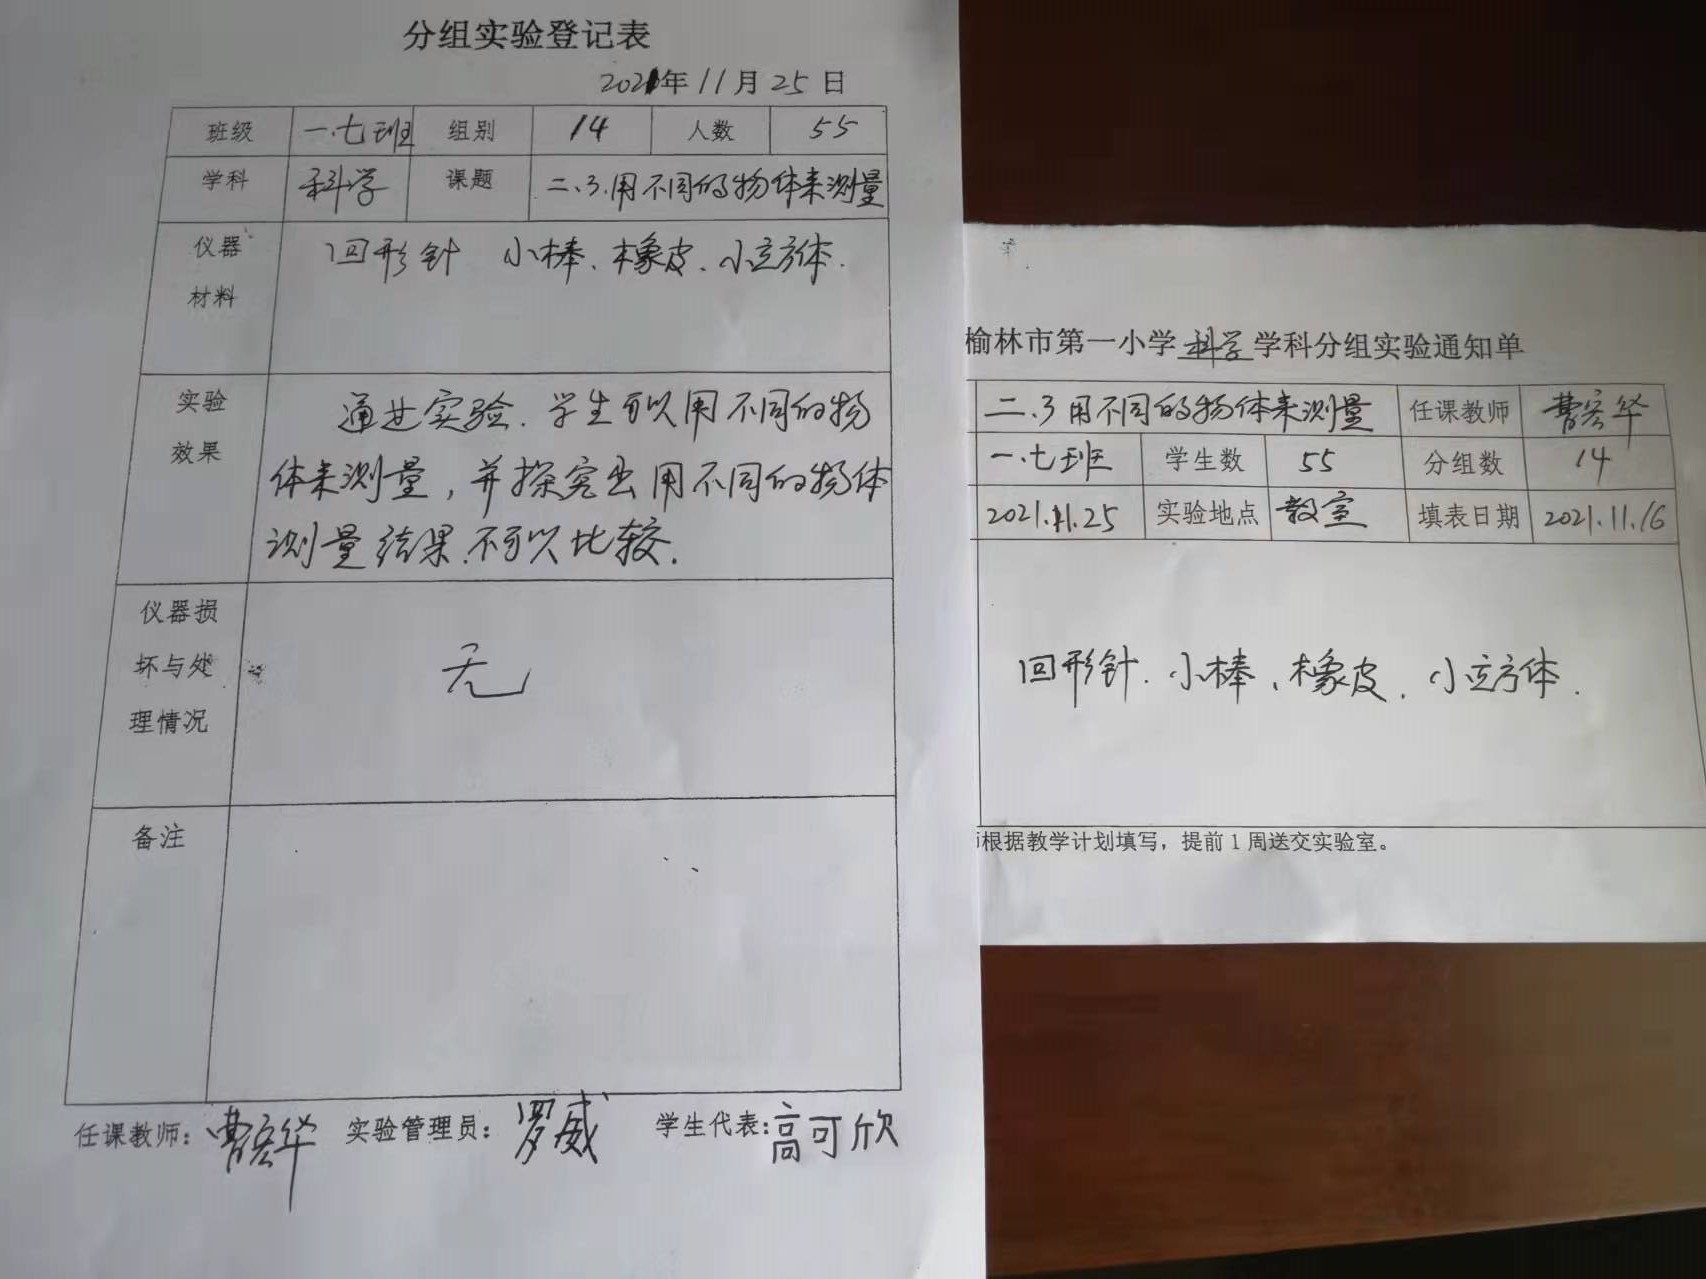 分组实验登记表
2021年11月25日
班级 一.七班 组别 14 人数 55
学科 科学 课题 二、3.用不同的物体来测量
仪器
材料
回形针 小棒、橡皮、小立方体.
实验
效果
通过实验.学生可以用不同的物
体来测量,并探究出用不同的物体
测量结果.不可以比较.
仪器损
坏与处
理情况
无
备注
任课教师:曹宏华 实验管理员:罗威 学生代表:高可欣
榆林市第一小学科学学科分组实验通知单
二.3用不同的物体来测量 任课教师 曹宏华
一.七班 学生数 55 分组数 14
2021.11.25 实验地点 教室 填表日期 2021.11.16
回形针.小棒、橡皮.小立方体.
根据教学计划填写,提前1周送交实验室。